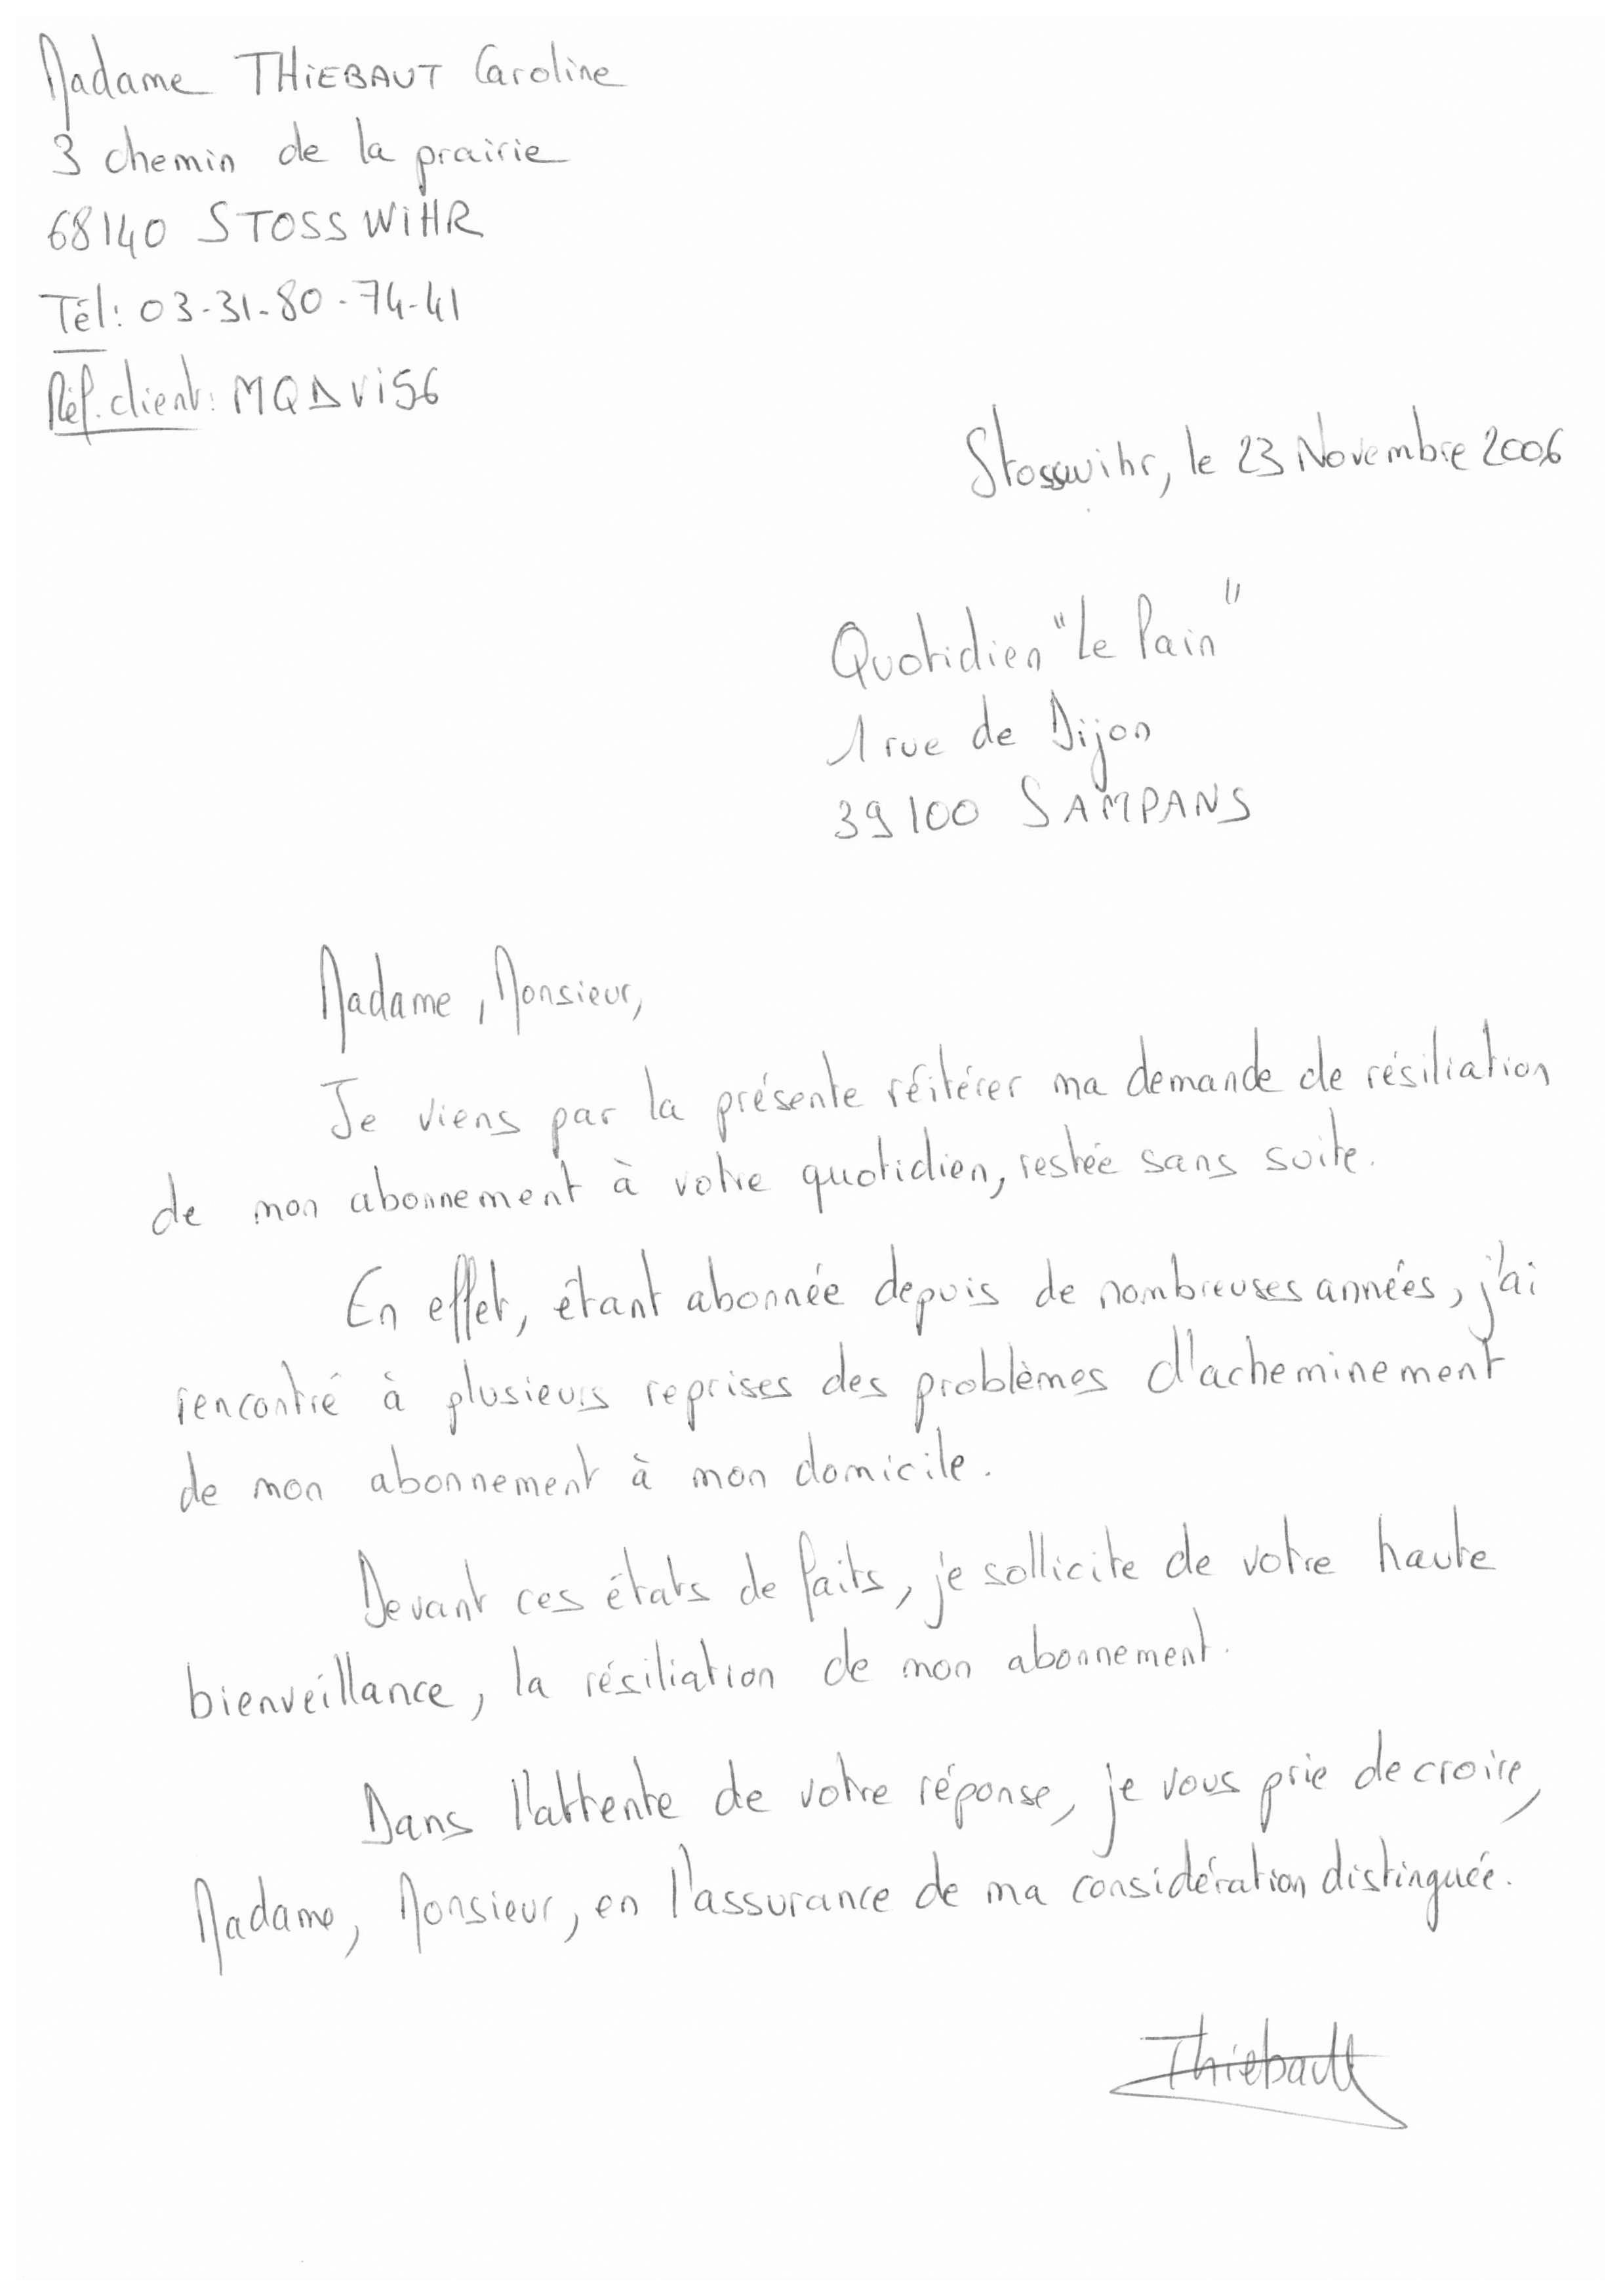 Madame THIEBAUT Caroline
3 chemin de la prairie
68140 STOSSWIHR
Tél: 03-31-80-74-41
Réf. client: MQDVI56
Stosswihr, le 23 Novembre 2006
Quotidien "Le Pain"
1 rue de Dijon
39100 SAMPANS
Madame, Monsieur,
Je viens par la présente réitérer ma demande de résiliation
de mon abonnement à votre quotidien, restée sans suite.
En effet, étant abonnée depuis de nombreuses années, j'ai
rencontré à plusieurs reprises des problèmes d'acheminement
de mon abonnement à mon domicile.
Devant ces états de faits, je sollicite de votre haute
bienveillance, la résiliation de mon abonnement.
Dans l'attente de votre réponse, je vous prie de croire,
Madame, Monsieur, en l'assurance de ma considération distinguée.
Thiebaut